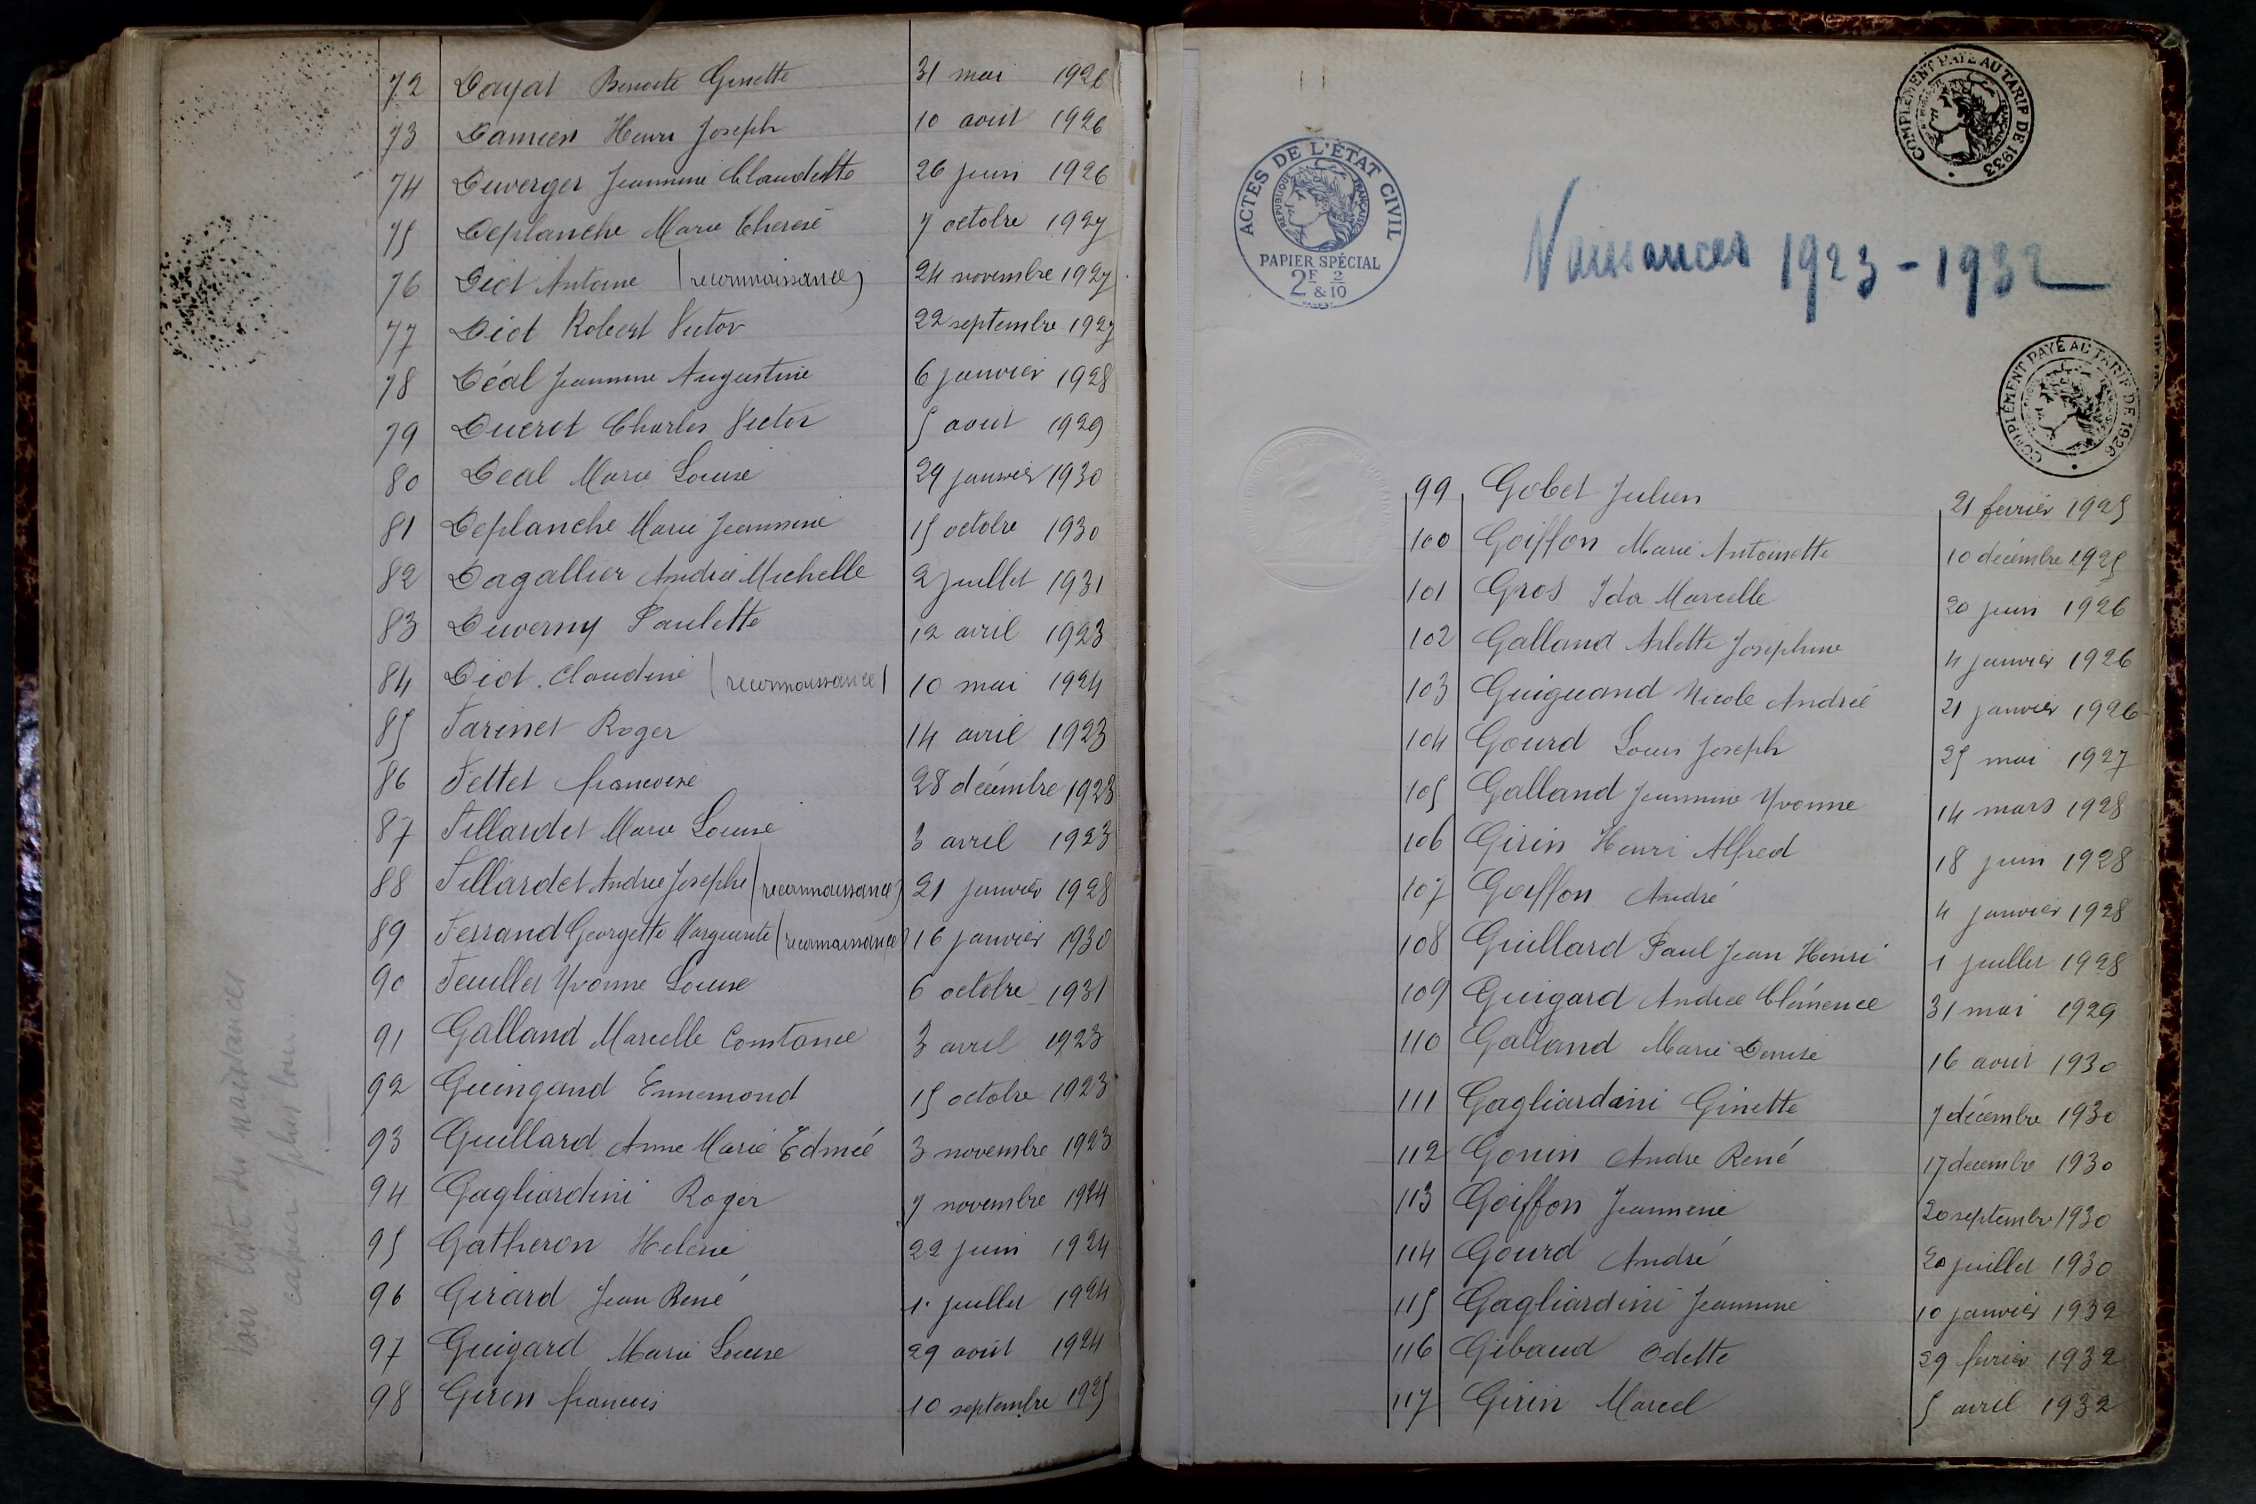 72 Dayat Benoite Ginette 31 mai 1926
73 Damien Henri Joseph 10 aout 1926
74 Duverger Jeannine Claudette 26 juin 1926
75 Deplanche Marie Therese 7 octobre 1927
76 Diot Antoine (reconnaissance) 24 novembre 1927
77 Diot Robert Victor 22 septembre 1927
78 Déal Jeannine Augustine 6 janvier 1928
79 Ducrot Charles Victor 5 aout 1929
80 Deal Marie Louise 29 janvier 1930
81 Deplanche Marie Jeannine 15 octobre 1930
82 Dagallier Andrée Michelle 2 juillet 1931
83 Duverny Paulette 12 avril 1923
84 Diot Claudine (reconnaissance) 10 mai 1924
85 Farinet Roger 14 avril 1923
86 Fettet francoise 28 décembre 1923
87 Fillardet Marie Louise 3 avril 1923
88 Fillardet Andrée Josephe (reconnaissance) 21 janvier 1928
89 Ferrand Georgette Marguerite (reconnaissance) 16 janvier 1930
90 Feuillet Yvonne Louise 6 octobre 1931
91 Galland Marcelle Constance 3 avril 1923
92 Guingand Ennemond 15 octobre 1923
93 Guillard Anne Marie Edmée 3 novembre 1923
94 Gagliardini Roger 7 novembre 1924
95 Gatheron Helene 22 juin 1924
96 Girard Jean René 1 juillet 1924
97 Guigard Marie Louise 29 août 1924
98 Girin francois 10 septembre 1925
voir liste des naissances
cahier plus loin
COMPLÉMENT PAYÉ AU TARIF DE 1933
ACTES DE L'ÉTAT CIVIL
REPUBLIQUE FRANÇAISE
PAPIER SPÉCIAL
2F & 2/10
Naissances 1923 - 1932
COMPLÉMENT PAYÉ AU TARIF DE 1926
99 Gobet Julien 21 fevrier 1925
100 Goiffon Marie Antoinette 10 décembre 1925
101 Gros Ida Marcelle 20 juin 1926
102 Galland Arlette Josephine 4 janvier 1926
103 Guiguand Nicole Andrée 21 janvier 1926
104 Gourd Louis Joseph 25 mai 1927
105 Galland Jeannine Yvonne 14 mars 1928
106 Girin Henri Alfred 18 juin 1928
107 Goiffon André 4 janvier 1928
108 Guillard Paul Jean Henri 1 juillet 1928
109 Guigard Andree Clémence 31 mai 1929
110 Galland Marie Denise 16 aout 1930
111 Gagliardini Ginette 7 décembre 1930
112 Gonin Andre René 17 decembre 1930
113 Goiffon Jeannine 20 septembre 1930
114 Gourd André 20 juillet 1930
115 Gagliardini Jeannine 10 janvier 1932
116 Gibaud Odette 29 fevrier 1932
117 Girin Marcel 5 avril 1932